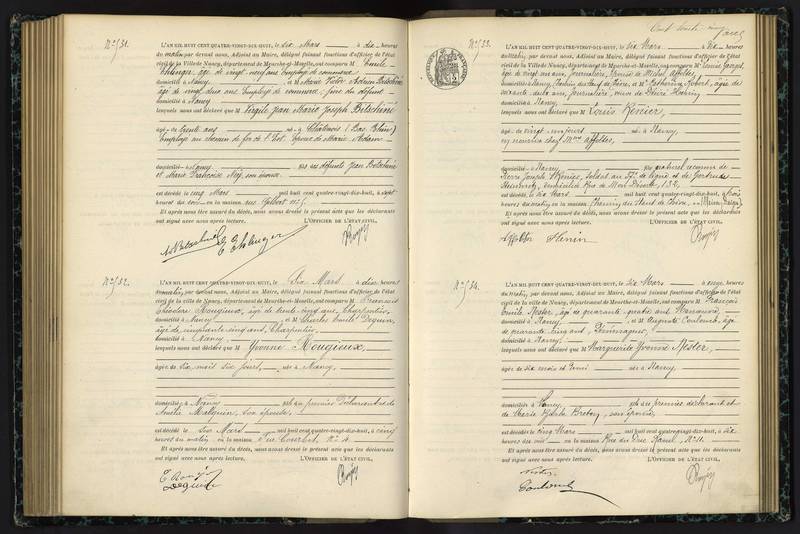 N° 31.
L'AN MIL HUIT CENT QUATRE-VINGT-DIX-HUIT, le six Mars à dix heures
du matin par devant nous, Adjoint au Maire, délégué faisant fonctions d'officier de l'état
civil de la Ville de Nancy, département de Meurthe-et-Moselle, ont comparu M Emile
Ehlinger, âgé de vingt-neuf ans Employé de commerce
domicilié à Nancy et M Marie Victor
âgé de vingt deux ans Employé de commerce, frère du défunt
domicilié à Nancy
lesquels nous ont déclaré que M Virgile Jean Marie Joseph
âgé de trente ans né à Châtenois (Bas Rhin)
Employé au chemin de fer de l'Est. Époux de Marie Adam
domicilié à Nancy fils des défunts Jean
et Marie Françoise Ney, son épouse
est décédé le cinq Mars mil huit cent quatre-vingt-dix-huit, à sept
heures du soir en la maison rue Gilbert
Et après nous être assuré du décès, nous avons dressé le présent acte que les déclarants
ont signé avec nous après lecture. L'OFFICIER DE L'ÉTAT CIVIL,
E Ehlinger
N° 32.
L'AN MIL HUIT CENT QUATRE-VINGT-DIX-HUIT, le Six Mars à dix heures
du matin, par devant nous, Adjoint au Maire, délégué faisant fonctions d'officier de l'état
civil de la ville de Nancy, département de Meurthe-et-Moselle, ont comparu M François
Théodore Rougieux, âgé de trente-cinq ans, Charpentier,
domicilié à Nancy et M Charles Emile Dequin,
âgé de cinquante cinq ans, Charpentier,
domicilié à Nancy
lesquels nous ont déclaré que M Yvonne Rougieux,
âgée de six mois six jours, née à Nancy,
domiciliée à Nancy est du premier Déclarant et de
Amélie Malquin, son épouse,
est décédée le Six Mars mil huit cent quatre-vingt-dix-huit, à cinq
heures du matin en la maison Rue Courbet, N° 4
Et après nous être assuré du décès, nous avons dressé le présent acte que les déclarants
ont signé avec nous après lecture. L'OFFICIER DE L'ÉTAT CIVIL,
Dequin
N° 33.
L'AN MIL HUIT CENT QUATRE-VINGT-DIX-HUIT, le Six Mars à dix heures
du matin, par devant nous, Adjoint au Maire, délégué faisant fonctions d'officier de l'état
civil de la Ville de Nancy, département de Meurthe-et-Moselle, ont comparu Me Louise Georges,
âgée de vingt six ans, Journalière, épouse de Michel Affolter,
domiciliée à Nancy, et Me Catherine Robert, âgée de
ans, Journalière, veuve de Désiré
domiciliée à Nancy
lesquels nous ont déclaré que M Louis Renier,
âgé de vingt-six jours né à Nancy,
en nourrice chez Mme Affolter,
domicilié à Nancy fils naturel reconnu de
Pierre Joseph Renier, soldat au de ligne et de Gertrude
domiciliés Rue de Mon Désert, 132,
est décédé le Six Mars mil huit cent quatre-vingt-dix-huit, à trois
heures du matin en la maison
Et après nous être assuré du décès, nous avons dressé le présent acte que les déclarants
ont signé avec nous après lecture. L'OFFICIER DE L'ÉTAT CIVIL,
Affolter
N° 34.
L'AN MIL HUIT CENT QUATRE-VINGT-DIX-HUIT, le Six Mars à onze heures
du matin, par devant nous, Adjoint au Maire, délégué faisant fonctions d'officier de l'état
civil de la ville de Nancy, département de Meurthe-et-Moselle, ont comparu M François
Emile Nester, âgé de quarante quatre ans Manœuvre,
domicilié à Nancy, et M Auguste Coulomb, âgé
de quarante cinq ans, Déménageur,
domicilié à Nancy,
lesquels nous ont déclaré que M Marguerite Yvonne Nester,
âgée de six mois et demi née à Nancy,
domiciliée à Nancy, fille du premier déclarant et
de Marie Breton, son épouse,
est décédée le cinq Mars mil huit cent quatre-vingt-dix-huit, à six
heures du soir en la maison Rue du Duc Raoul, N° 11.
Et après nous être assuré du décès, nous avons dressé le présent acte que les déclarants
ont signé avec nous après lecture. L'OFFICIER DE L'ÉTAT CIVIL,
Nester
Coulomb